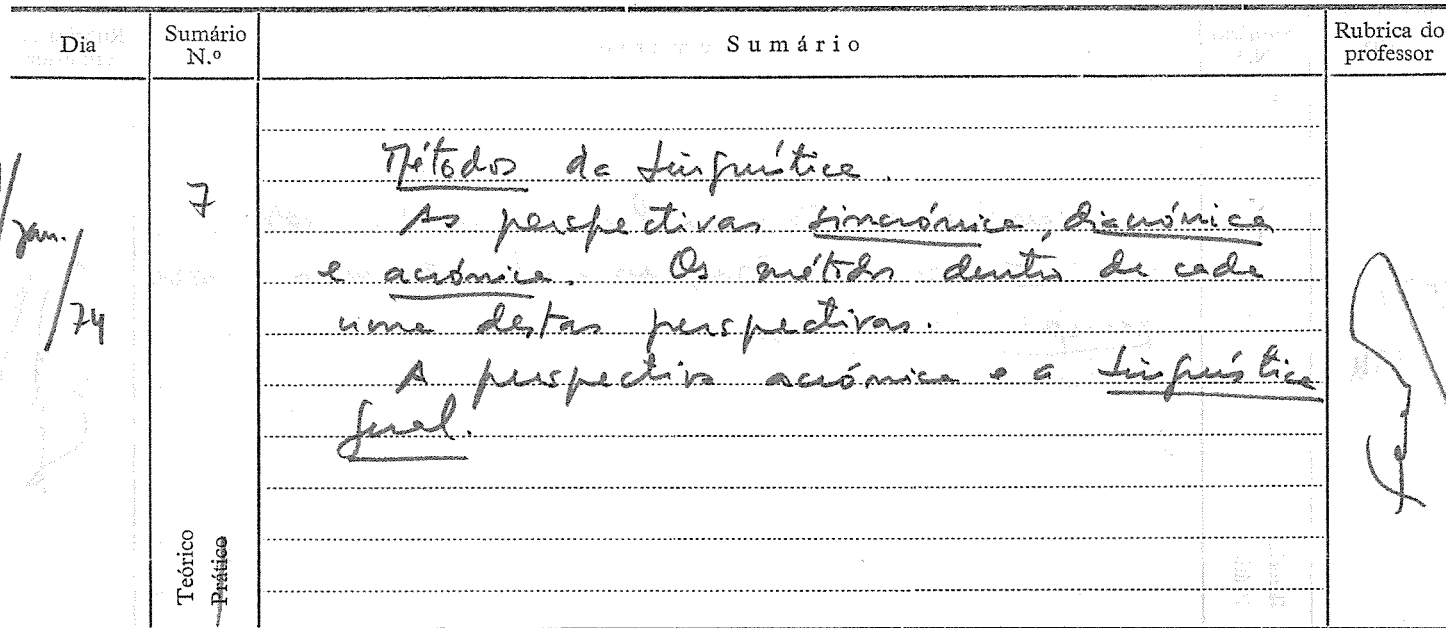 Dia
Sumário N.º
Sumário
Rubrica do professor
/jan./74
7
Métodos da Linguística.
As perspectivas sincrónica, diacrónica
e acrónica. Os métodos dentro de cada
uma destas perspectivas.
A perspectiva acrónica e a Linguística
Geral.
Teórico
Prático